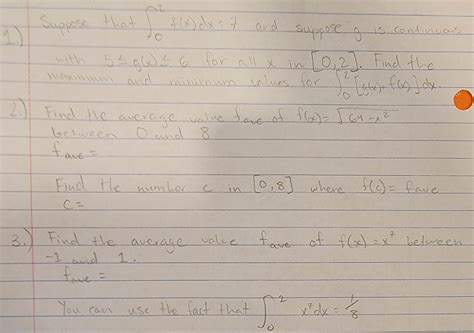 1.) Suppose that ∫₀² f(x)dx = 7 and suppose g is continuous
with 5 ≤ g(x) ≤ 6 for all x in [0,2]. Find the
maximum and minimum values for ∫₀² [g(x) + f(x)] dx.
2.) Find the average value fave of f(x) = √64-x²
between 0 and 8
fave =
Find the number c in [0,8] where f(c) = fave
c =
3.) Find the average value fave of f(x) = x⁷ between
-1 and 1.
fave =
You can use the fact that ∫₀² x⁷dx = 1/8